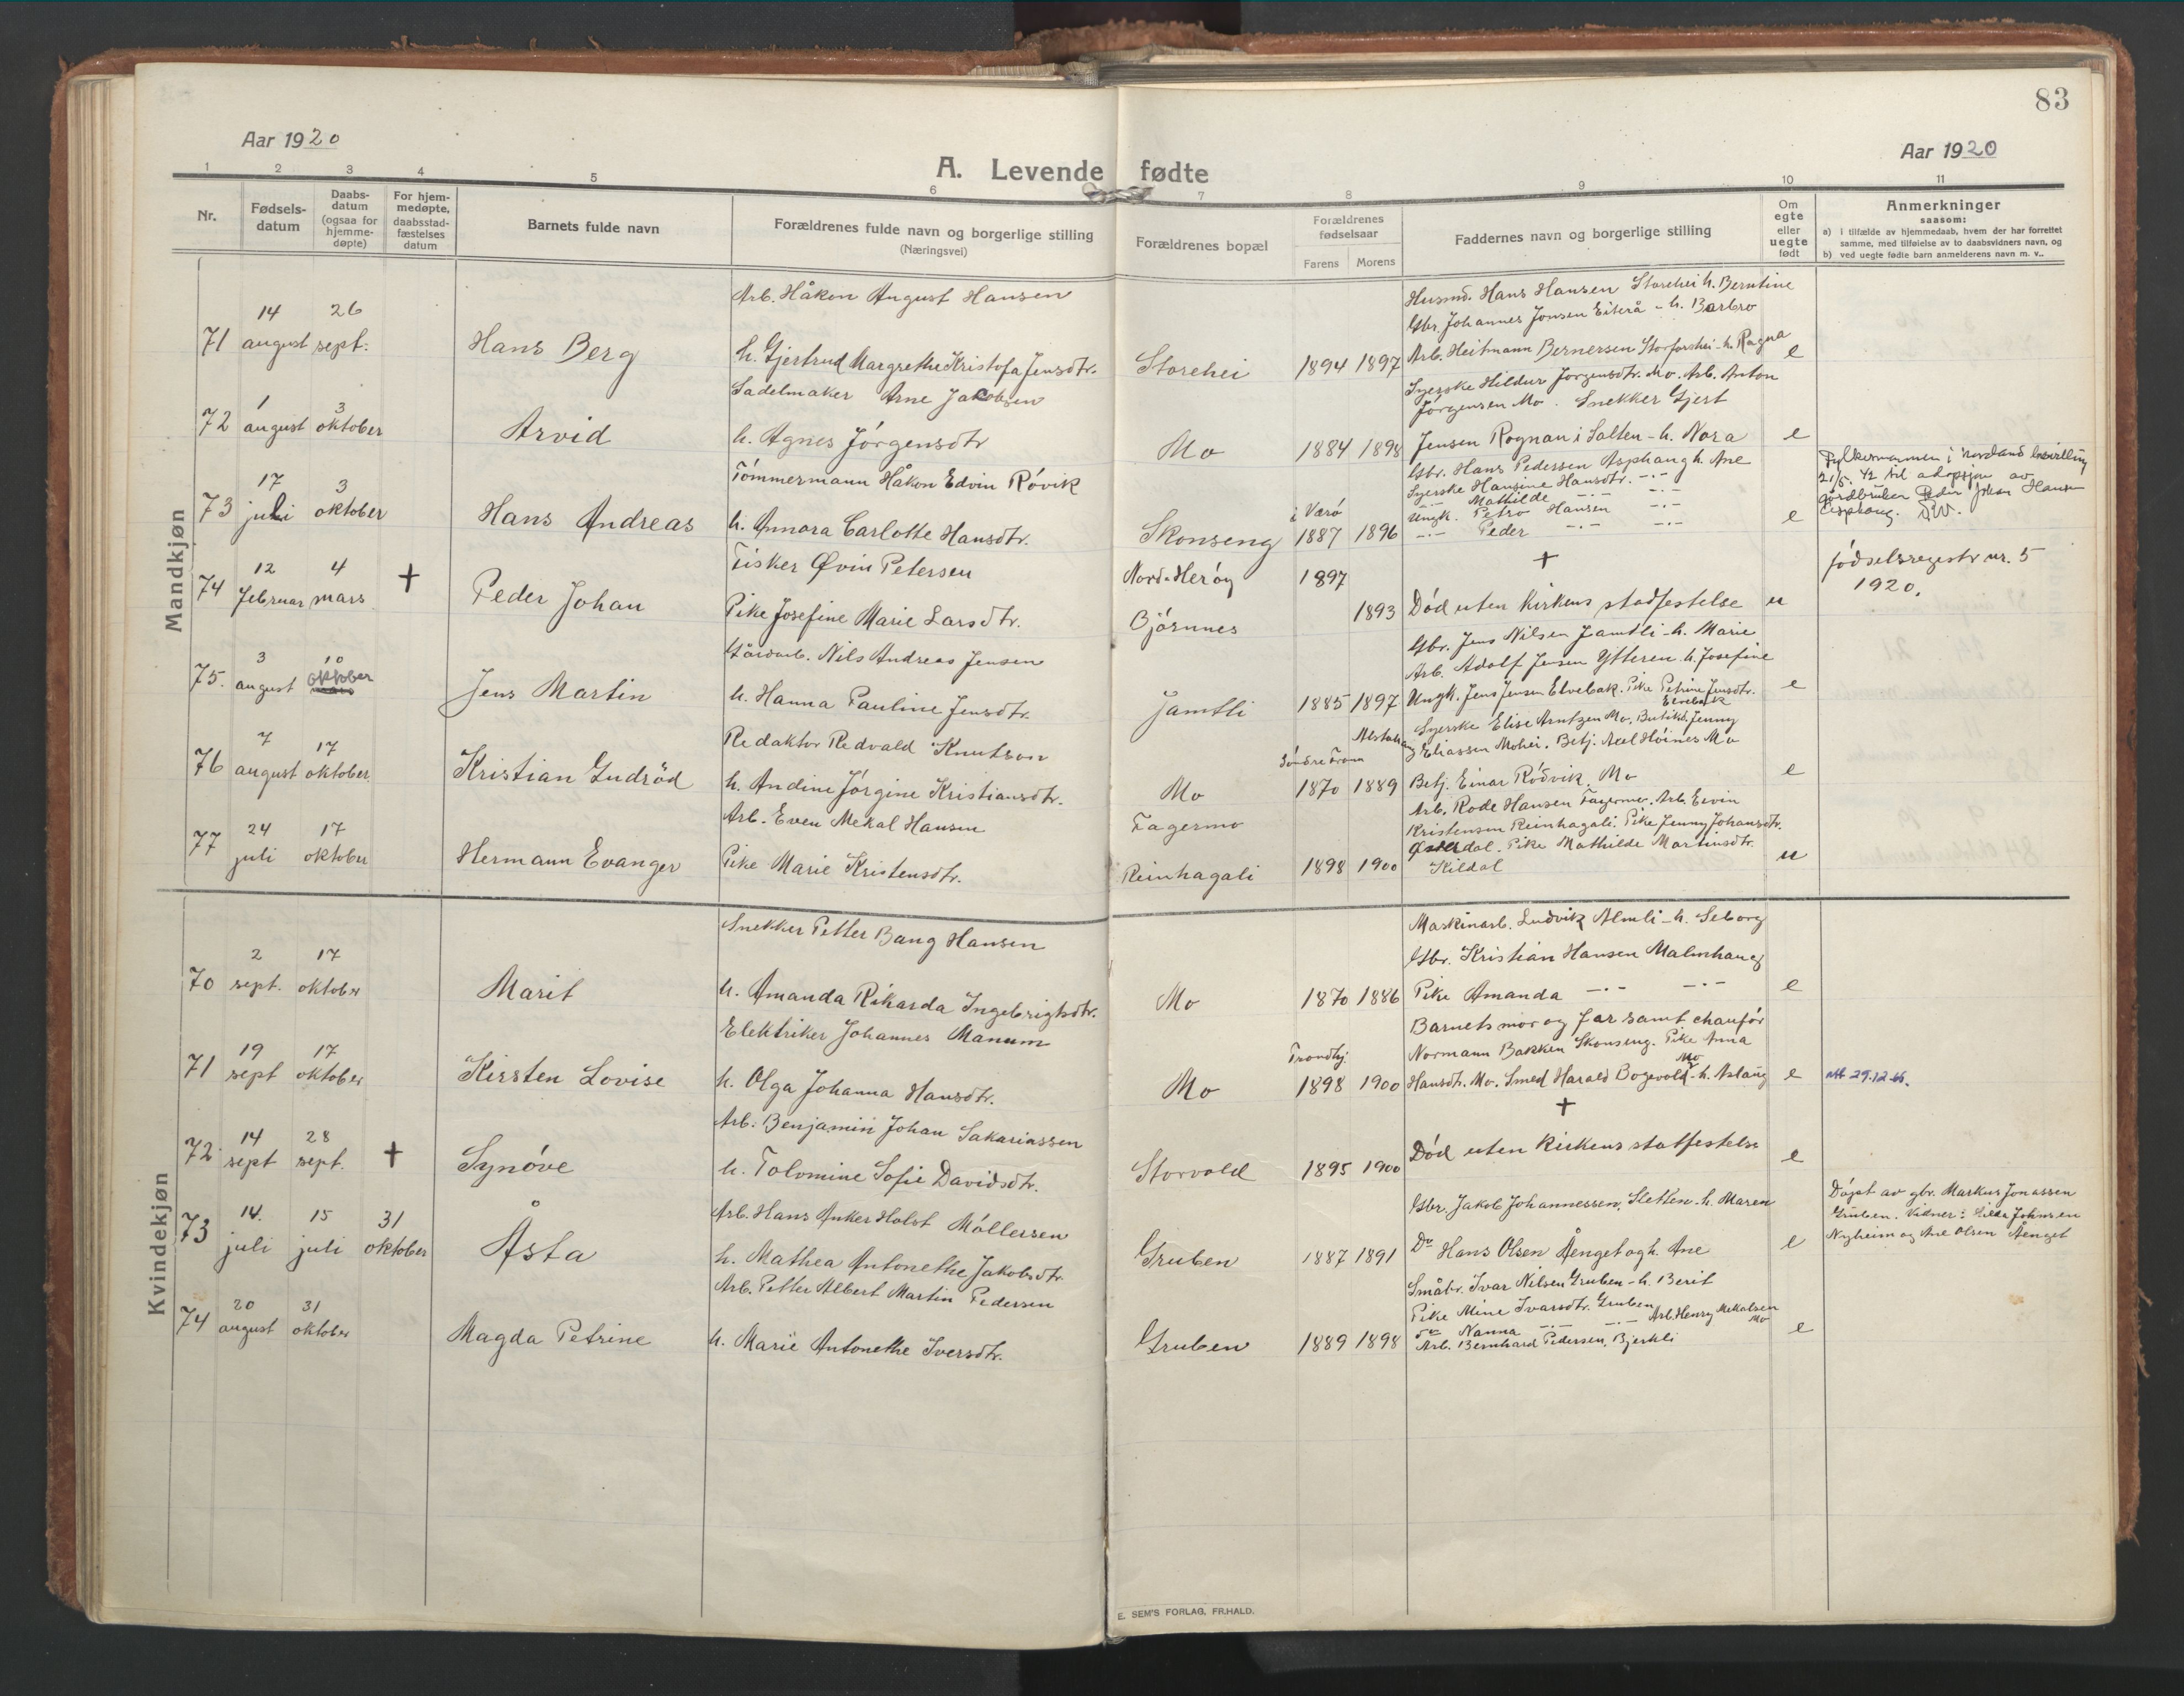 83
Aar 1920
A. Levende fødte
Aar 1920
1 2 3 4 5 6 7 8 9 10 11
Nr.
Fødsels-
datum
Daabs-
datum
(ogsaa for
hjemme-
døpte)
For hjem-
medøpte,
daabsstad-
fæstelses
datum
Barnets fulde navn
Forældrenes fulde navn og borgerlige stilling
(Næringsvei)
Forældrenes bopæl
Forældrenes
fødselsaar
Farens Morens
Faddernes navn og borgerlige stilling
Om
egte
eller
uegte
født
Anmerkninger
saasom:
a) i tilfælde av hjemmedaab, hvem der har forrettet
samme, med tilføielse av to daabsvidners navn, og
b) ved uegte fødte barn anmelderens navn m. v..
Mandkjøn
71
14
august
26
sept.
Hans Berg
Arb. Håkon August Hansen
h. Gjertrud Margrethe Kristofa Jensdtr.
Storehei
1894 1897
Husmd. Hans Hansen Storehei h. Berntine
Gbr. Johannes Jonsen Eiterå - h. Barbro
Arb. Heitmann Bernersen Storforshei - h. Ragna
e
72
1
august
3
oktober
Arvid
Sadelmaker Arne Jakobsen
h. Agnes Jörgensdtr
Mo
1884 1898
Syerske Hildur Jörgensdtr. Mo. Arb. Anton
Jörgensen Mo. Snekker Gjert
Jensen Rognan i Salten - h. Nora
e
73
17
juli
3
oktober
Hans Andreas
Tömmermann Håkon Edvin Rövik
h. Annora Carlotte Hansdtr.
Skonseng
i Værö
1887 1896
Gbr. Hans Pedersen Asphaug h. Ane
Syerske Hansine Hansdtr. -.-
-.- Mathilde -.- -.-
Ungk. Petro Hansen -.-
-.- Peder -.- -.-
e
Fylkesmannen i Nordland bevilling
21/5. 42 til adopsjon av
gårdbruker Peder Johan Hansen
Asphaug.
74
12
februar
4
mars
+
Peder Johan
Fisker Øvin Petersen
Pike Josefine Marie Larsdtr.
Nord-Heröy
Björnnes
1897
1893
+
Död uten Kirkens stadfestelse
u
födselsregestr nr. 5
1920.
75.
3
august
10
oktober
Jens Martin
Gårdarb. Nils Andreas Jensen
h. Hanna Pauline Jensdtr.
Jamtli
1885 1897
Gbr. Jens Nilsen Jamtli - h. Marie
Arb. Adolf Jensen Ytteren h. Josefine
Ungk. Jens Jensen Elvebak. Pike Petrine Jensdtr.
Elvebak
e
76
7
august
17
oktober
Kristian Gudröd
Redaktör Redvald Knutson
h. Andine Jörgine Kristiansdtr.
Mo
Alstahaug
1870 1889
Syerske Elise Arntzen Mo. Butikd. Jenny
Eliassen Mohei. Betj. Axel Höines Mo
Betj. Einar Rödvik Mo
e
77
24
juli
17
oktober
Hermann Evanger
Arb. Even Mekal Hansen
Pike Marie Kristensdtr.
Fagermo
Reinhagali
1898 1900
Arb. Rode Hansen Fagermo. Arb. Eivin
Kristensen Reinhagali. Pike Jenny Johansdtr.
Østerdal. Pike Mathilde Martinsdtr.
Kildal
u
Kvindekjøn
70
2
sept.
17
oktober
Marit
Snekker Petter Bang Hansen
h. Amanda Rikarda Ingebrigtsdtr.
Mo
1870 1886
Maskinarb. Ludvik Almli - h. Seborg
Gbr. Kristian Hansen Malmhaug
Pike Amanda -.- -.-
e
71
19
sept
17
oktober
Kirsten Lovise
Elektriker Johannes Manum
h. Olga Johanna Hansdtr.
Mo
Trondhj.
1898 1900
Barnets mor og far samt chauför
Normann Bakken Skonseng. Pike Anna
Hansdtr. Mo. Smed Harald Bogevold Mo - h. Aslaug
e
att 29.12.66.
72.
14
sept
28
sept.
+
Synöve
Arb. Benjamin Johan Sakariassen
h. Tolomine Sofie Davidsdtr.
Storvold
1895 1900
+
Död uten Kirkens statfestelse
e
73
14.
juli
15
juli
31
oktober
Åsta
Arb. Hans Anker Holst Möllersen
h. Mathea Antonethe Jakobsdtr.
Gruben
1887 1891
Gbr. Jakob Johannessen, Sletten - h. Maren
Do Hans Olsen Aenget og h. Ane
e
Döpt av gbr. Markus Jonassen
Gruben. Vidner: Hilda Johnsen
Nyheim og Ane Olsen Aenget
74
20
august
31
oktober
Magda Petrine
Arb. Petter Albert Martin Pedersen
h. Marie Antonethe Iversdtr.
Gruben
1889 1898
Småbr. Ivar Nilsen Gruben - h. Berit
Pike Mine Ivarsdtr. Gruben
Do Nanna -.- -.- Arb. Henry Mekalsen
Mo
Arb. Bernhard Pedersen, Bjerkli
e
E. SEM'S FORLAG, FR.HALD.